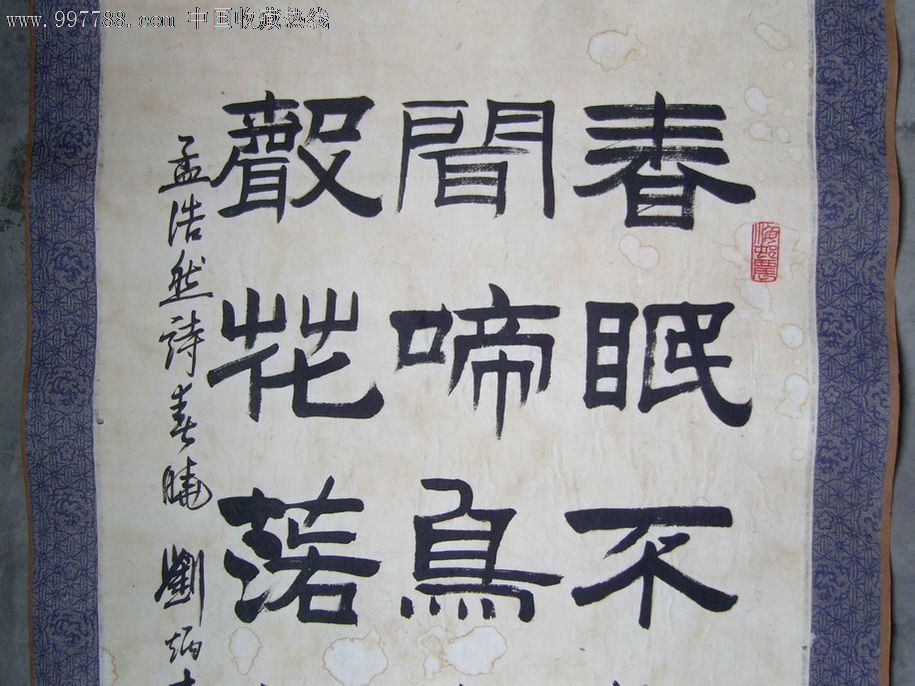 www.997788.com 中国收藏热线
春眠不
聞啼鳥
聲花落
孟浩然詩春曉 劉炳